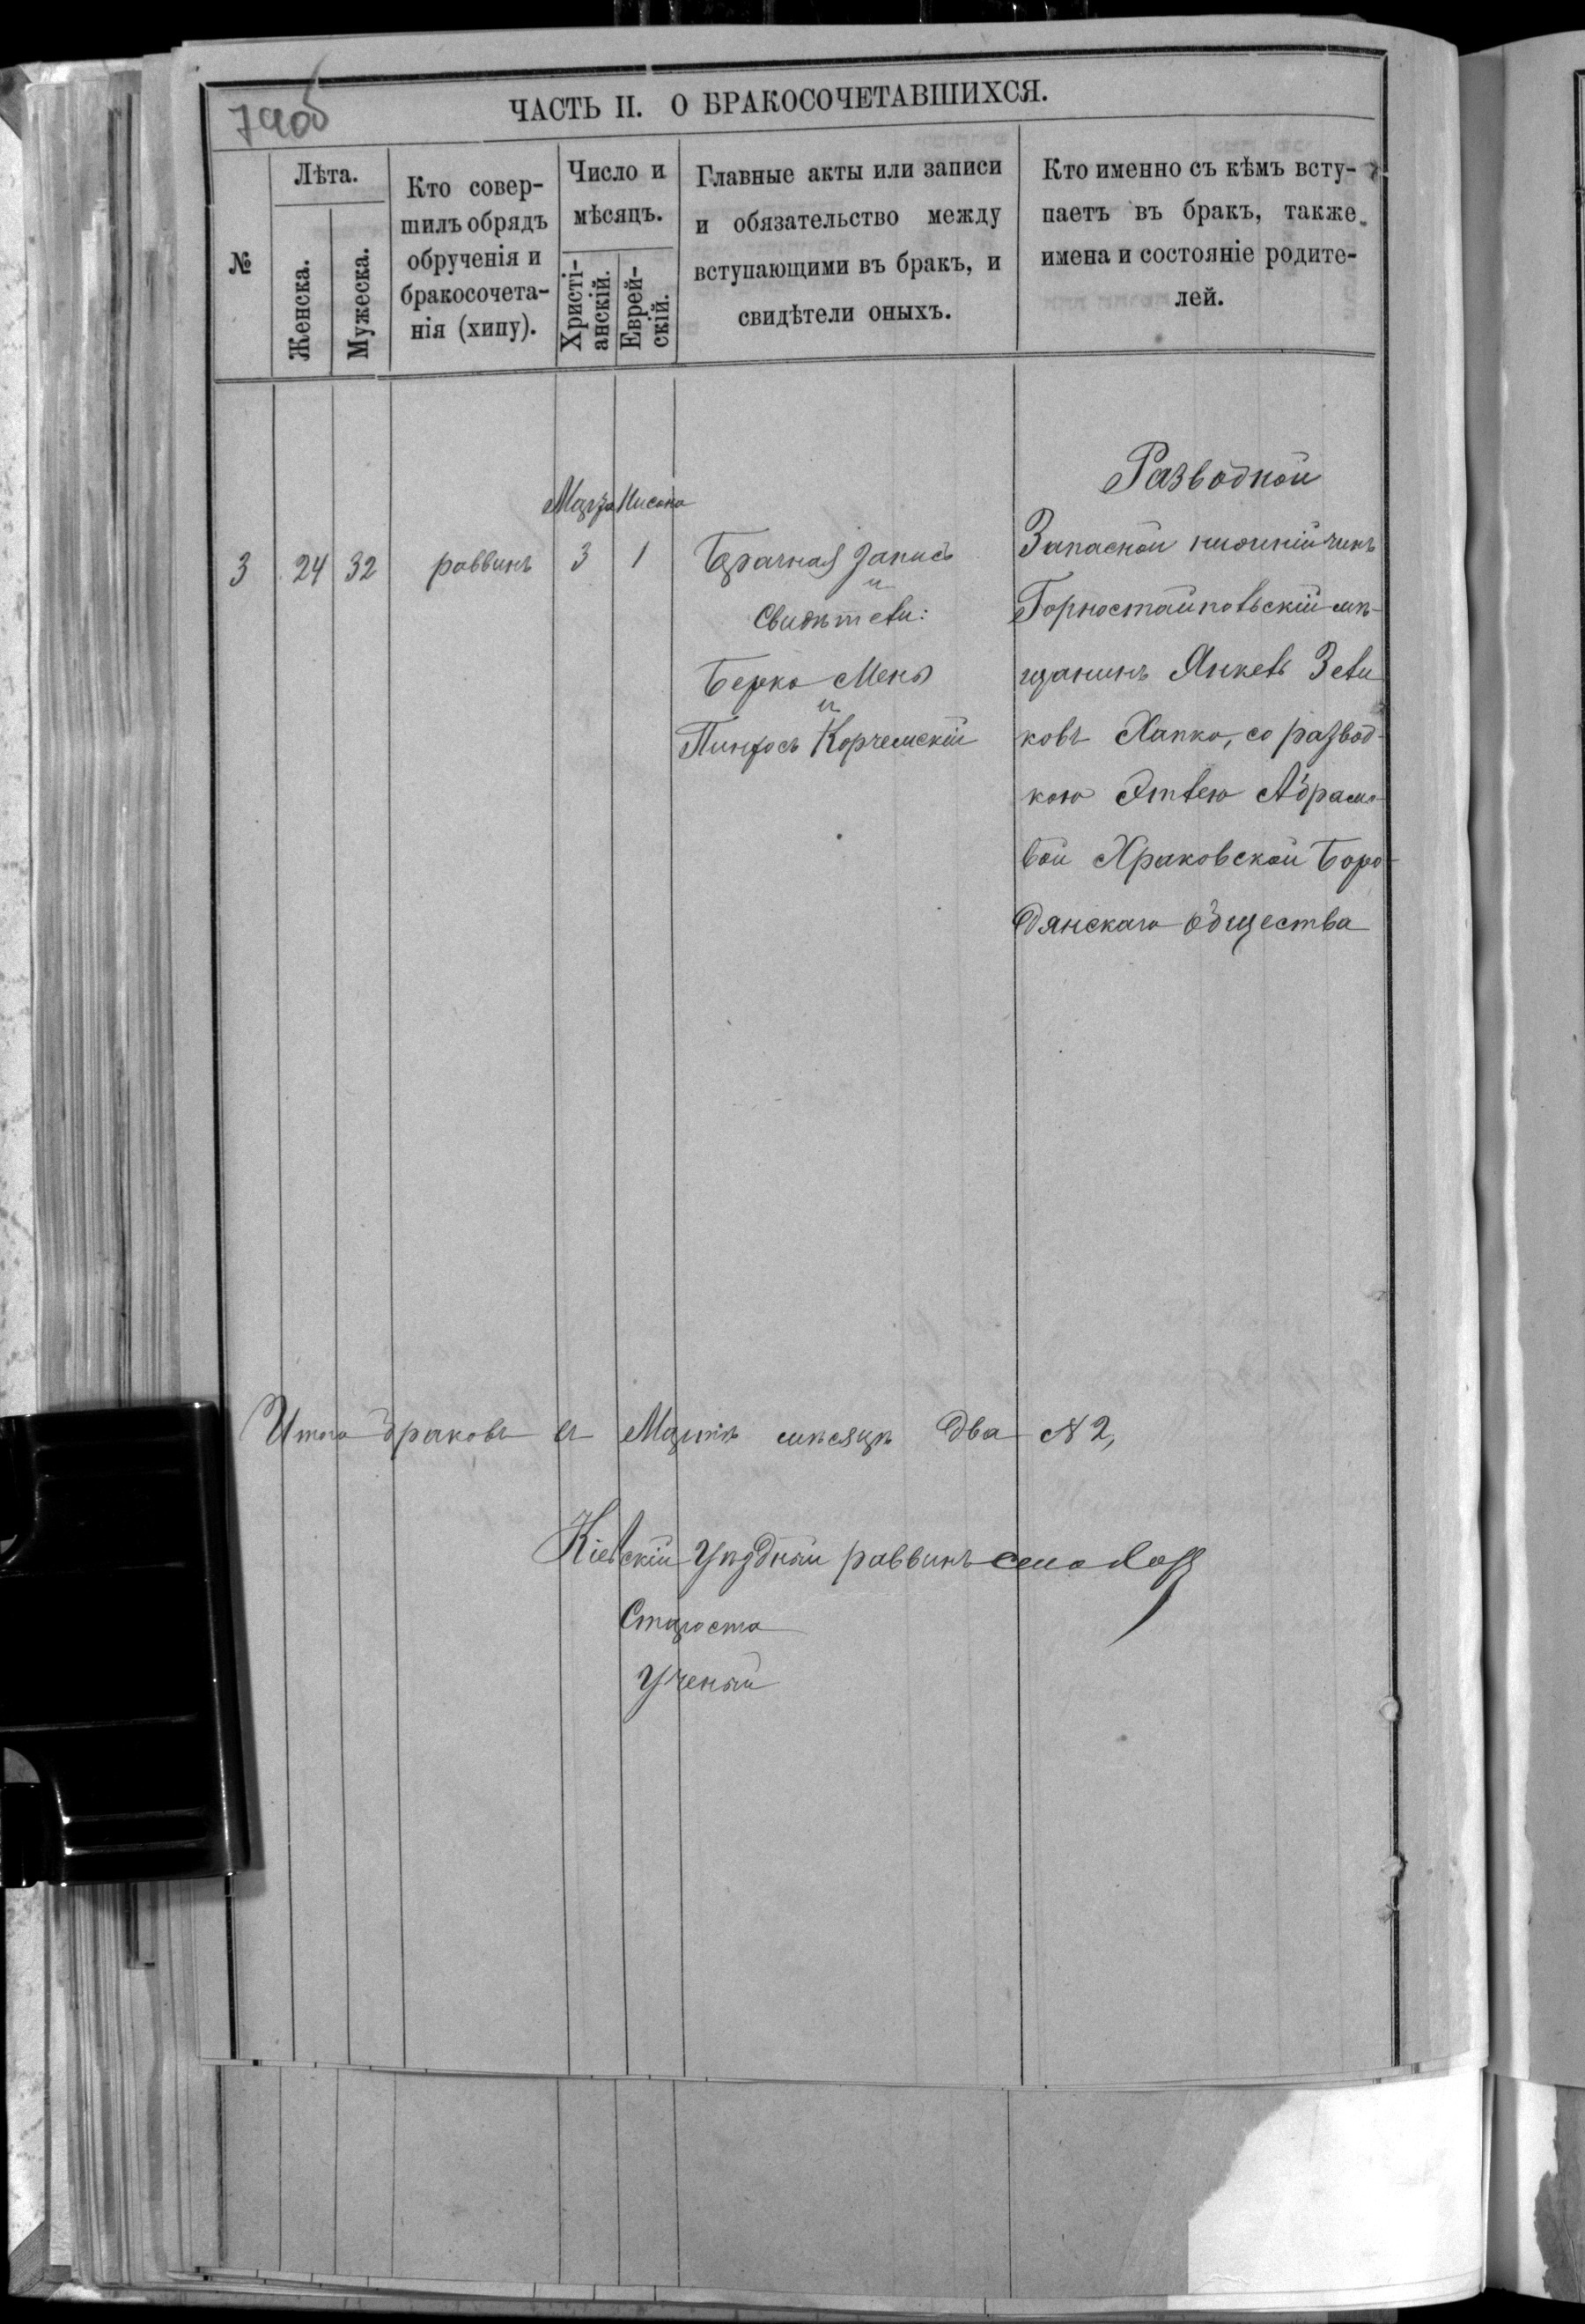 79об
ЧАСТЬ II. О БРАКОСОЧЕТАВШИХСЯ.
№
Лѣта.
Женска.
Мужеска.
Кто совер-
шилъ обрядъ
обрученія и
бракосочета-
нія (хипу).
Число и
мѣсяцъ.
Христі-
анскій.
Еврей-
скій.
Главные акты или записи
и обязательство между
вступающими въ бракъ, и
свидѣтели оныхъ.
Кто именно съ кѣмъ всту-
паетъ въ бракъ, также
имена и состояніе родите-
лей.
Марта Нисона
3 24 32 раввинъ 3 1
Брачная запись
и
Свидѣтели:
Берко Мень
и
Пинхосъ Корчемскій
Разводной
Запасной нижній чинъ
Горностайпольскій мѣ-
щанинъ Янкель Зели
ковъ Хапко, со развод-
кою Этлею Абрамо-
вой Храковской Боро-
дянскаго общества
Итого браковъ въ Мартѣ мѣсяцѣ два N 2,
Кіевскій Уѣздный раввинъ
Староста
Ученый